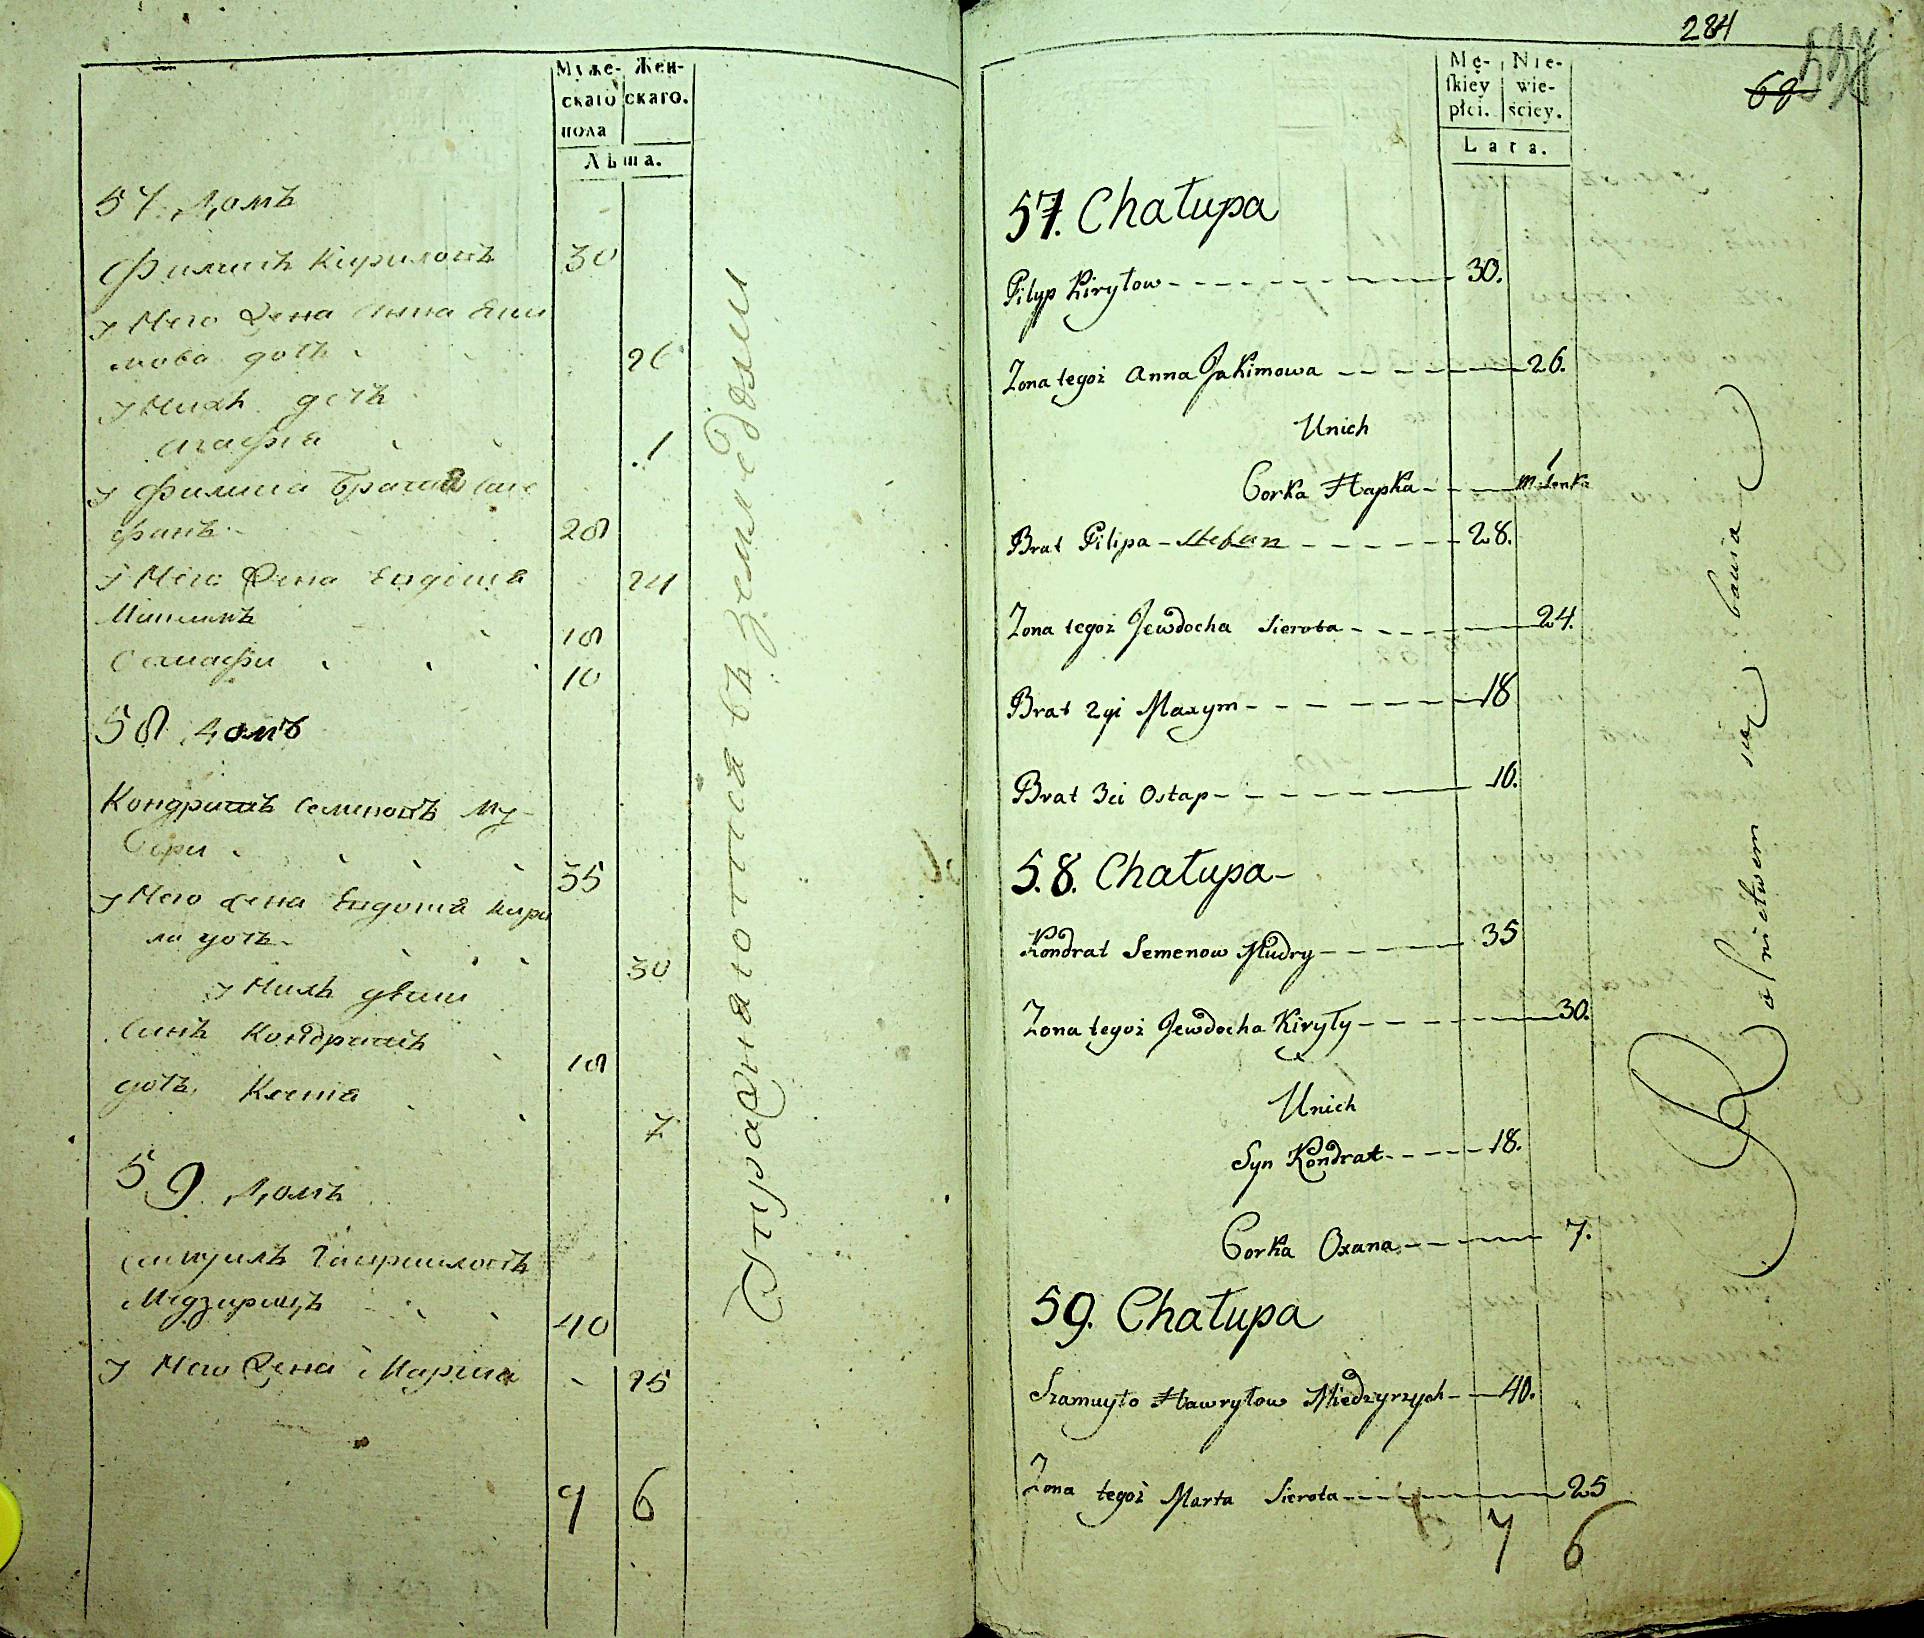 Муже- Жен-
скаго скаго.
пола
Лѣта.
57 Домъ
Филипъ Кириловъ 30
у Него Жена Анна Яки
мова дочь 26
у Нихъ дочь
Агафия 1
у Филипа братья Сте
фанъ 28
у Него Жена Евдокия 24
18
10
58 Домъ
Кондратъ Семеновъ Му-
дри 35
у Него Жена Евдокия Кири
ли дочь 30
у Нихъ дѣти
Синъ Кондратъ 18
дочь Ксеня 7
59 Домъ
Самуилъ Гавриловъ
Медзирицъ 40
у Него Жена Марина 25
7 6
Упражняются въ земледелии
284
68
Mę- Nie-
skiey wie-
płci. ściey.
Lata.
57. Chałupa
Filyp Kiryłow 30.
Zona tegoż Anna Jakimowa 26.
Unich
Corka Hapka 1
Brat Filipa Stefan 28.
Zona tegoż Jewdocha Sierota 24.
Brat 2gi Maxym 18
Brat 3ci Ostap 10.
58. Chałupa
Kondrat Semenow Mudry 35
Zona tegoż Jewdocha Kiryły 30.
Unich
Syn Kondrat 18.
Corka Oxana 7.
59. Chałupa
Szamuyło Hawryłow Miedzyrzych 40.
Zona tegoż Marta Sierota 25
7 6
Rolnictwem się bawia